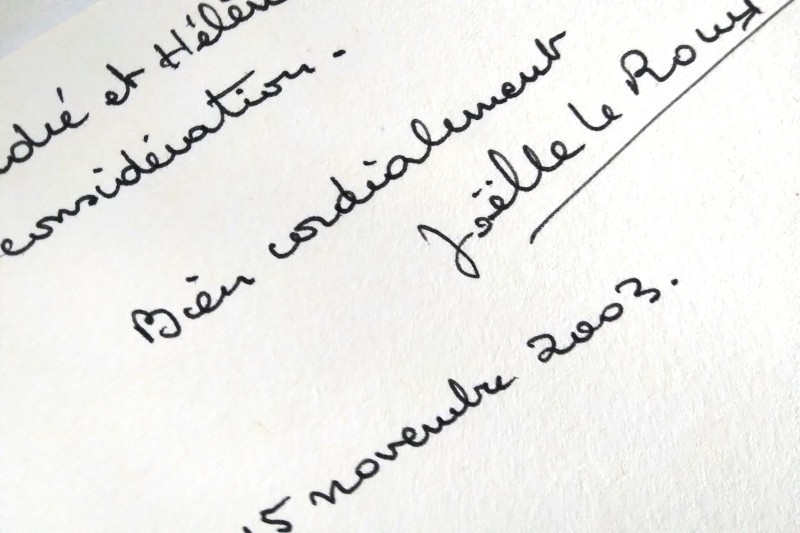 et Hélène
considération.
Bien cordialement
Joëlle le Roux
15 novembre 2003.